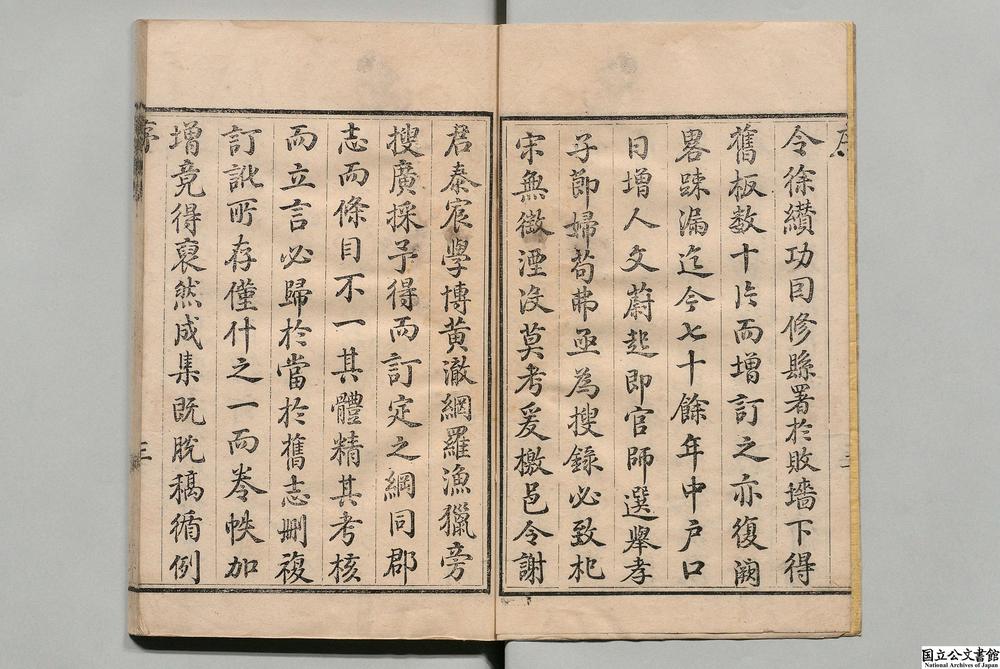 令徐纘功因修縣署於敗墻下得
舊板数十片而增訂之亦復闕
畧踈漏迄今七十餘年中户口
日增人文蔚起即官師選舉孝
子節婦苟弗亟為搜錄必致杞
宋無徵湮没莫考爰檄邑令謝
君泰宸學博黄澈綱羅漁獵旁
搜廣採予得而訂定之綱同郡
志而條目不一其體精其考核
而立言必歸於當於舊志刪複
訂訛所存僅什之一而卷帙加
增竟得裒然成集既脱稿循例
序
三
国立公文書館
National Archives of Japan